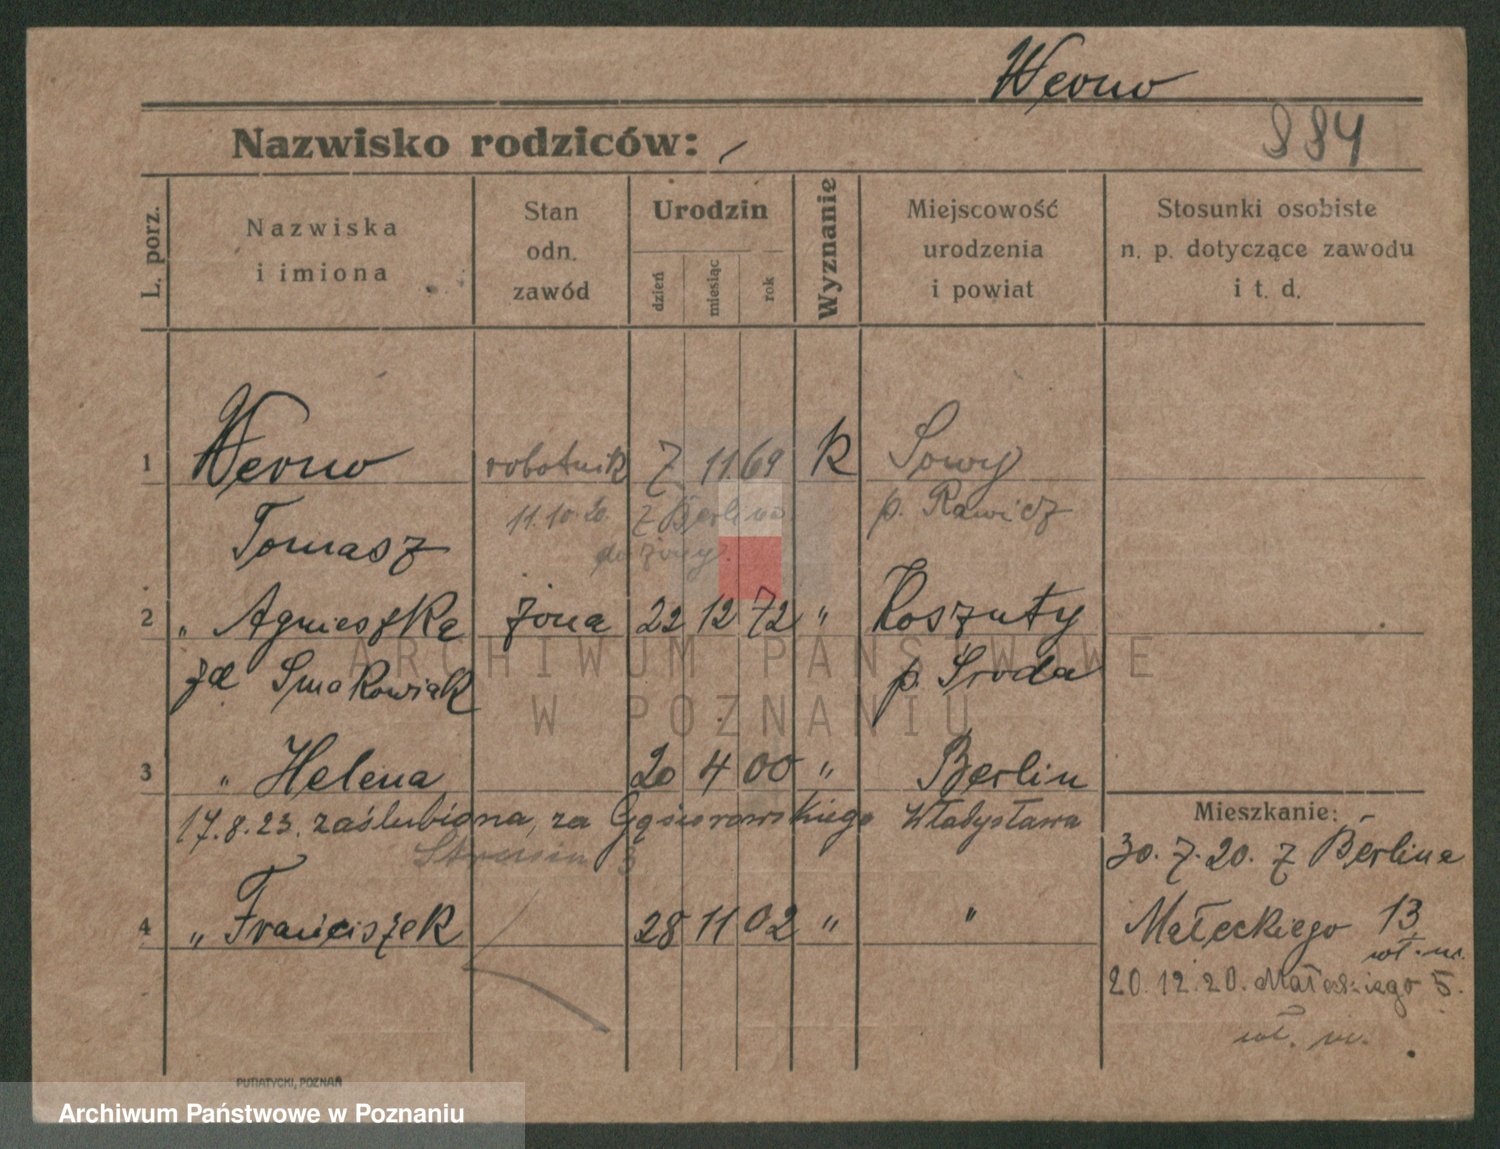 Werno
884
Nazwisko rodziców: /
L. porz.
Nazwiska i imiona
Stan odn. zawód
Urodzin
dzień
miesiąc
rok
Wyznanie
Miejscowość urodzenia i powiat
Stosunki osobiste n. p. dotyczące zawodu i t. d.
1 Werno robotnik 7 11 69 k Sowy
Tomasz 11.10.20. z Berlina p. Rawicz
do żony
2 " Agnieszka żona 22 12 72 " Koszuty
zd Smakowiak p. Środa
3 " Helena 20 4 00 " Berlin
17.8.23. zaślubiona, za Gąsiorowskiego Władysława
3
4 " Franciszek 28 11 02 " "
Mieszkanie:
30.7.20. z Berlina
Małeckiego 13
wł. m.
20.12.20. Małeckiego 5.
wł. m.
PUTIATYCKI, POZNAŃ
ARCHIWUM PAŃSTWOWE
W POZNANIU
Archiwum Państwowe w Poznaniu